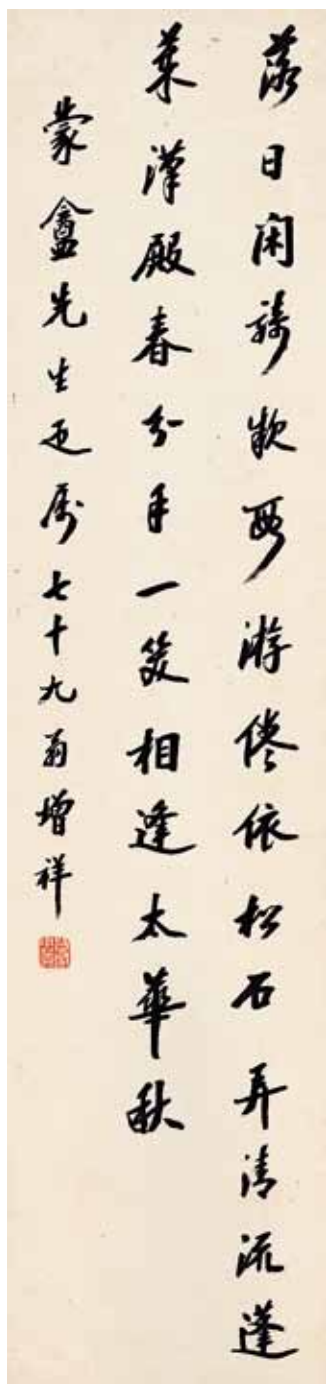 落日閑騎款段游倦依松石弄清流蓬
萊漢殿春分手一笑相逢太華秋
蒙盦先生正属七十九翁增祥